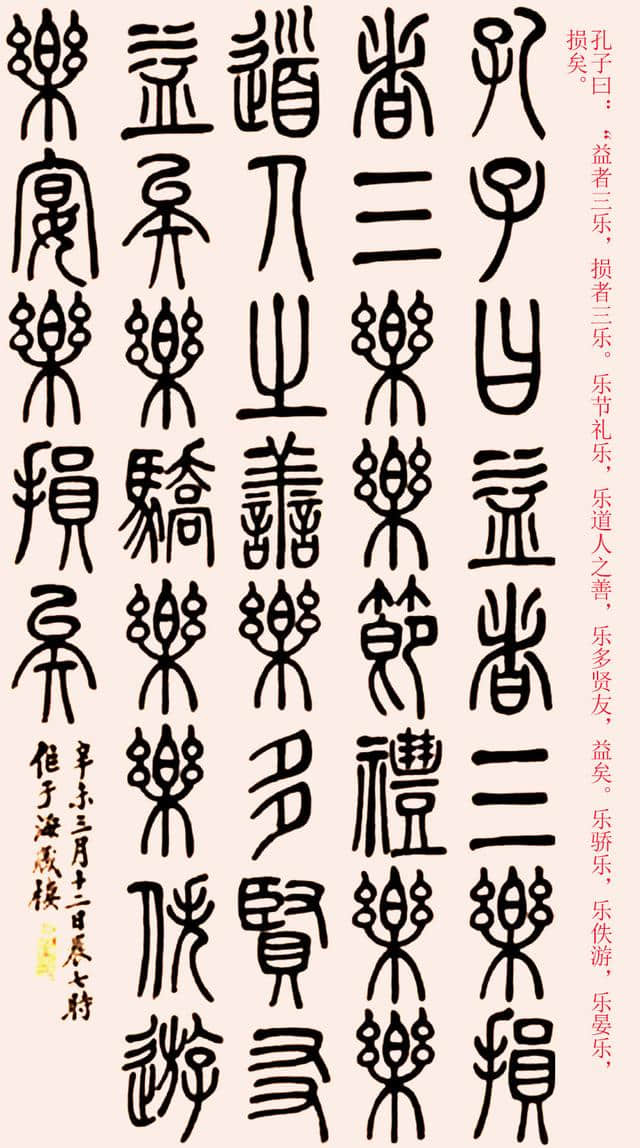 孔子曰：“益者三乐，损者三乐。乐节礼乐，乐道人之善，乐多贤友，益矣。乐骄乐，乐佚游，乐晏乐，
损矣。
孔子曰益者三樂損
者三樂樂節禮樂樂
道人之譱樂多賢友
益矣樂驕樂樂佚遊
樂宴樂損矣
辛未三月十二日晨七時
作于海樓